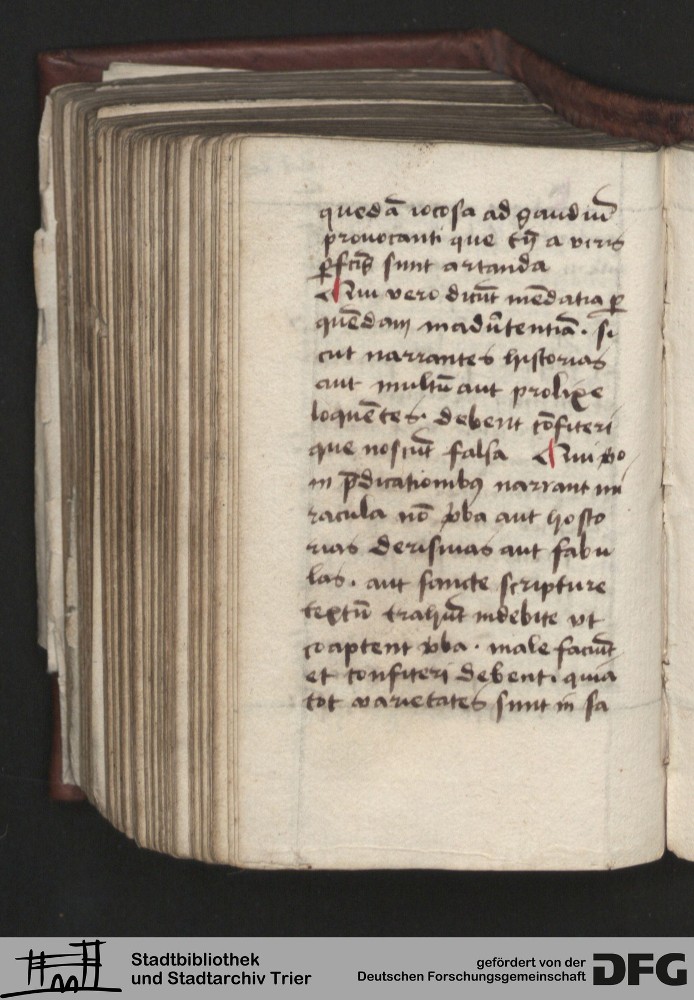 quedā iocosa ad gaudiū
prouocanti que tñ a viris
ꝑfctis sunt artanda
Qui vero dicūt mēdatia ꝑ
quēdam inadūtentiā. si
cut narrantes historias
aut multū aut prolixe
loquētes. debent cōfiteri
que nosciūt falsa Qui vo
in p̄dicationibꝫ narrant mi
racula nō ꝓba aut histo
rias derisiuas aut fabu
las. aut sancte scripture
textū trahūt indebite vt
coaptent vba. male faciūt
et confiteri debent. quia
tot varietates sunt in sa
Stadtbibliothek
und Stadtarchiv Trier
gefördert von der
Deutschen Forschungsgemeinschaft
DFG